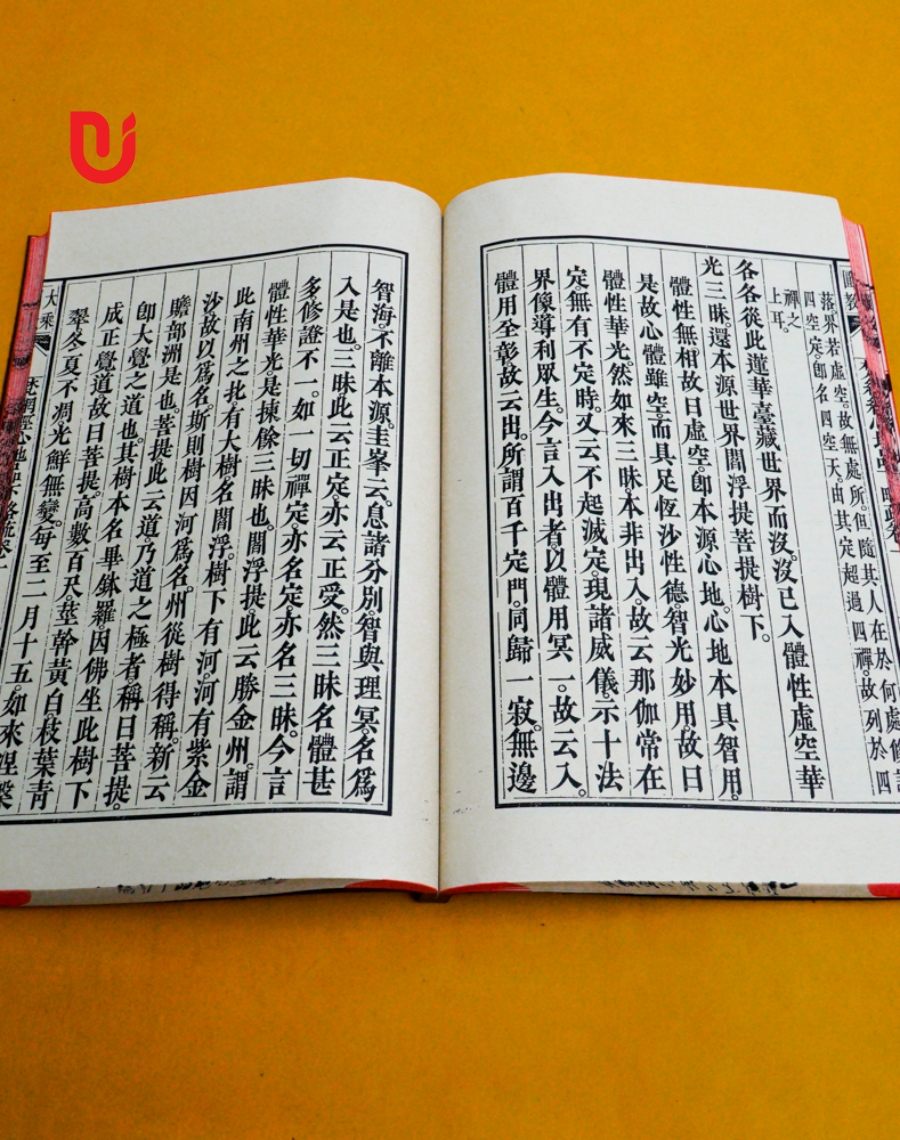 落界若虛空。故無處所。但隨其人在於何處修
四空定。即名四空天。由其定超過四禪。故列於四
禪之
上耳。
各各從此蓮華臺藏世界而沒。沒已入體性虛空華
光三昧。還本源世界閻浮提菩提樹下。
體性無相故曰虛空。卽本源心地。心地本具智用。
是故心體雖空。而具足恆沙性德。智光妙用故曰
體性華光。然如來三昧。本非出入。故云那伽常在
定。無有不定時。又云不起滅定。現諸威儀。示十法
界像。導利眾生。今言入出者。以體用冥一。故云入。
體用全彰。故云出。所謂百千定門。同歸一寂。無邊
智海。不離本源。圭峯云。息諸分別。智與理冥。名爲
入是也。三昧此云正定。亦云正受。然三昧名體甚
多。修證不一。如一切禪定亦名定。亦名三昧。今言
體性華光。是揀餘三昧也。閻浮提。此云勝金州。謂
此南州之北。有大樹名閻浮。樹下有河。河有紫金
沙。故以爲名。斯則樹因河爲名。州從樹得稱。新云
贍部洲是也。菩提此云道。乃道之極者。稱曰菩提。
卽大覺之道也。其樹本名畢鉢羅。因佛坐此樹下
成正覺道。故曰菩提。高數百尺。莖幹黃白。枝葉青
翠。冬夏不凋。光鮮無變。每至二月十五。如來涅槃
大乘